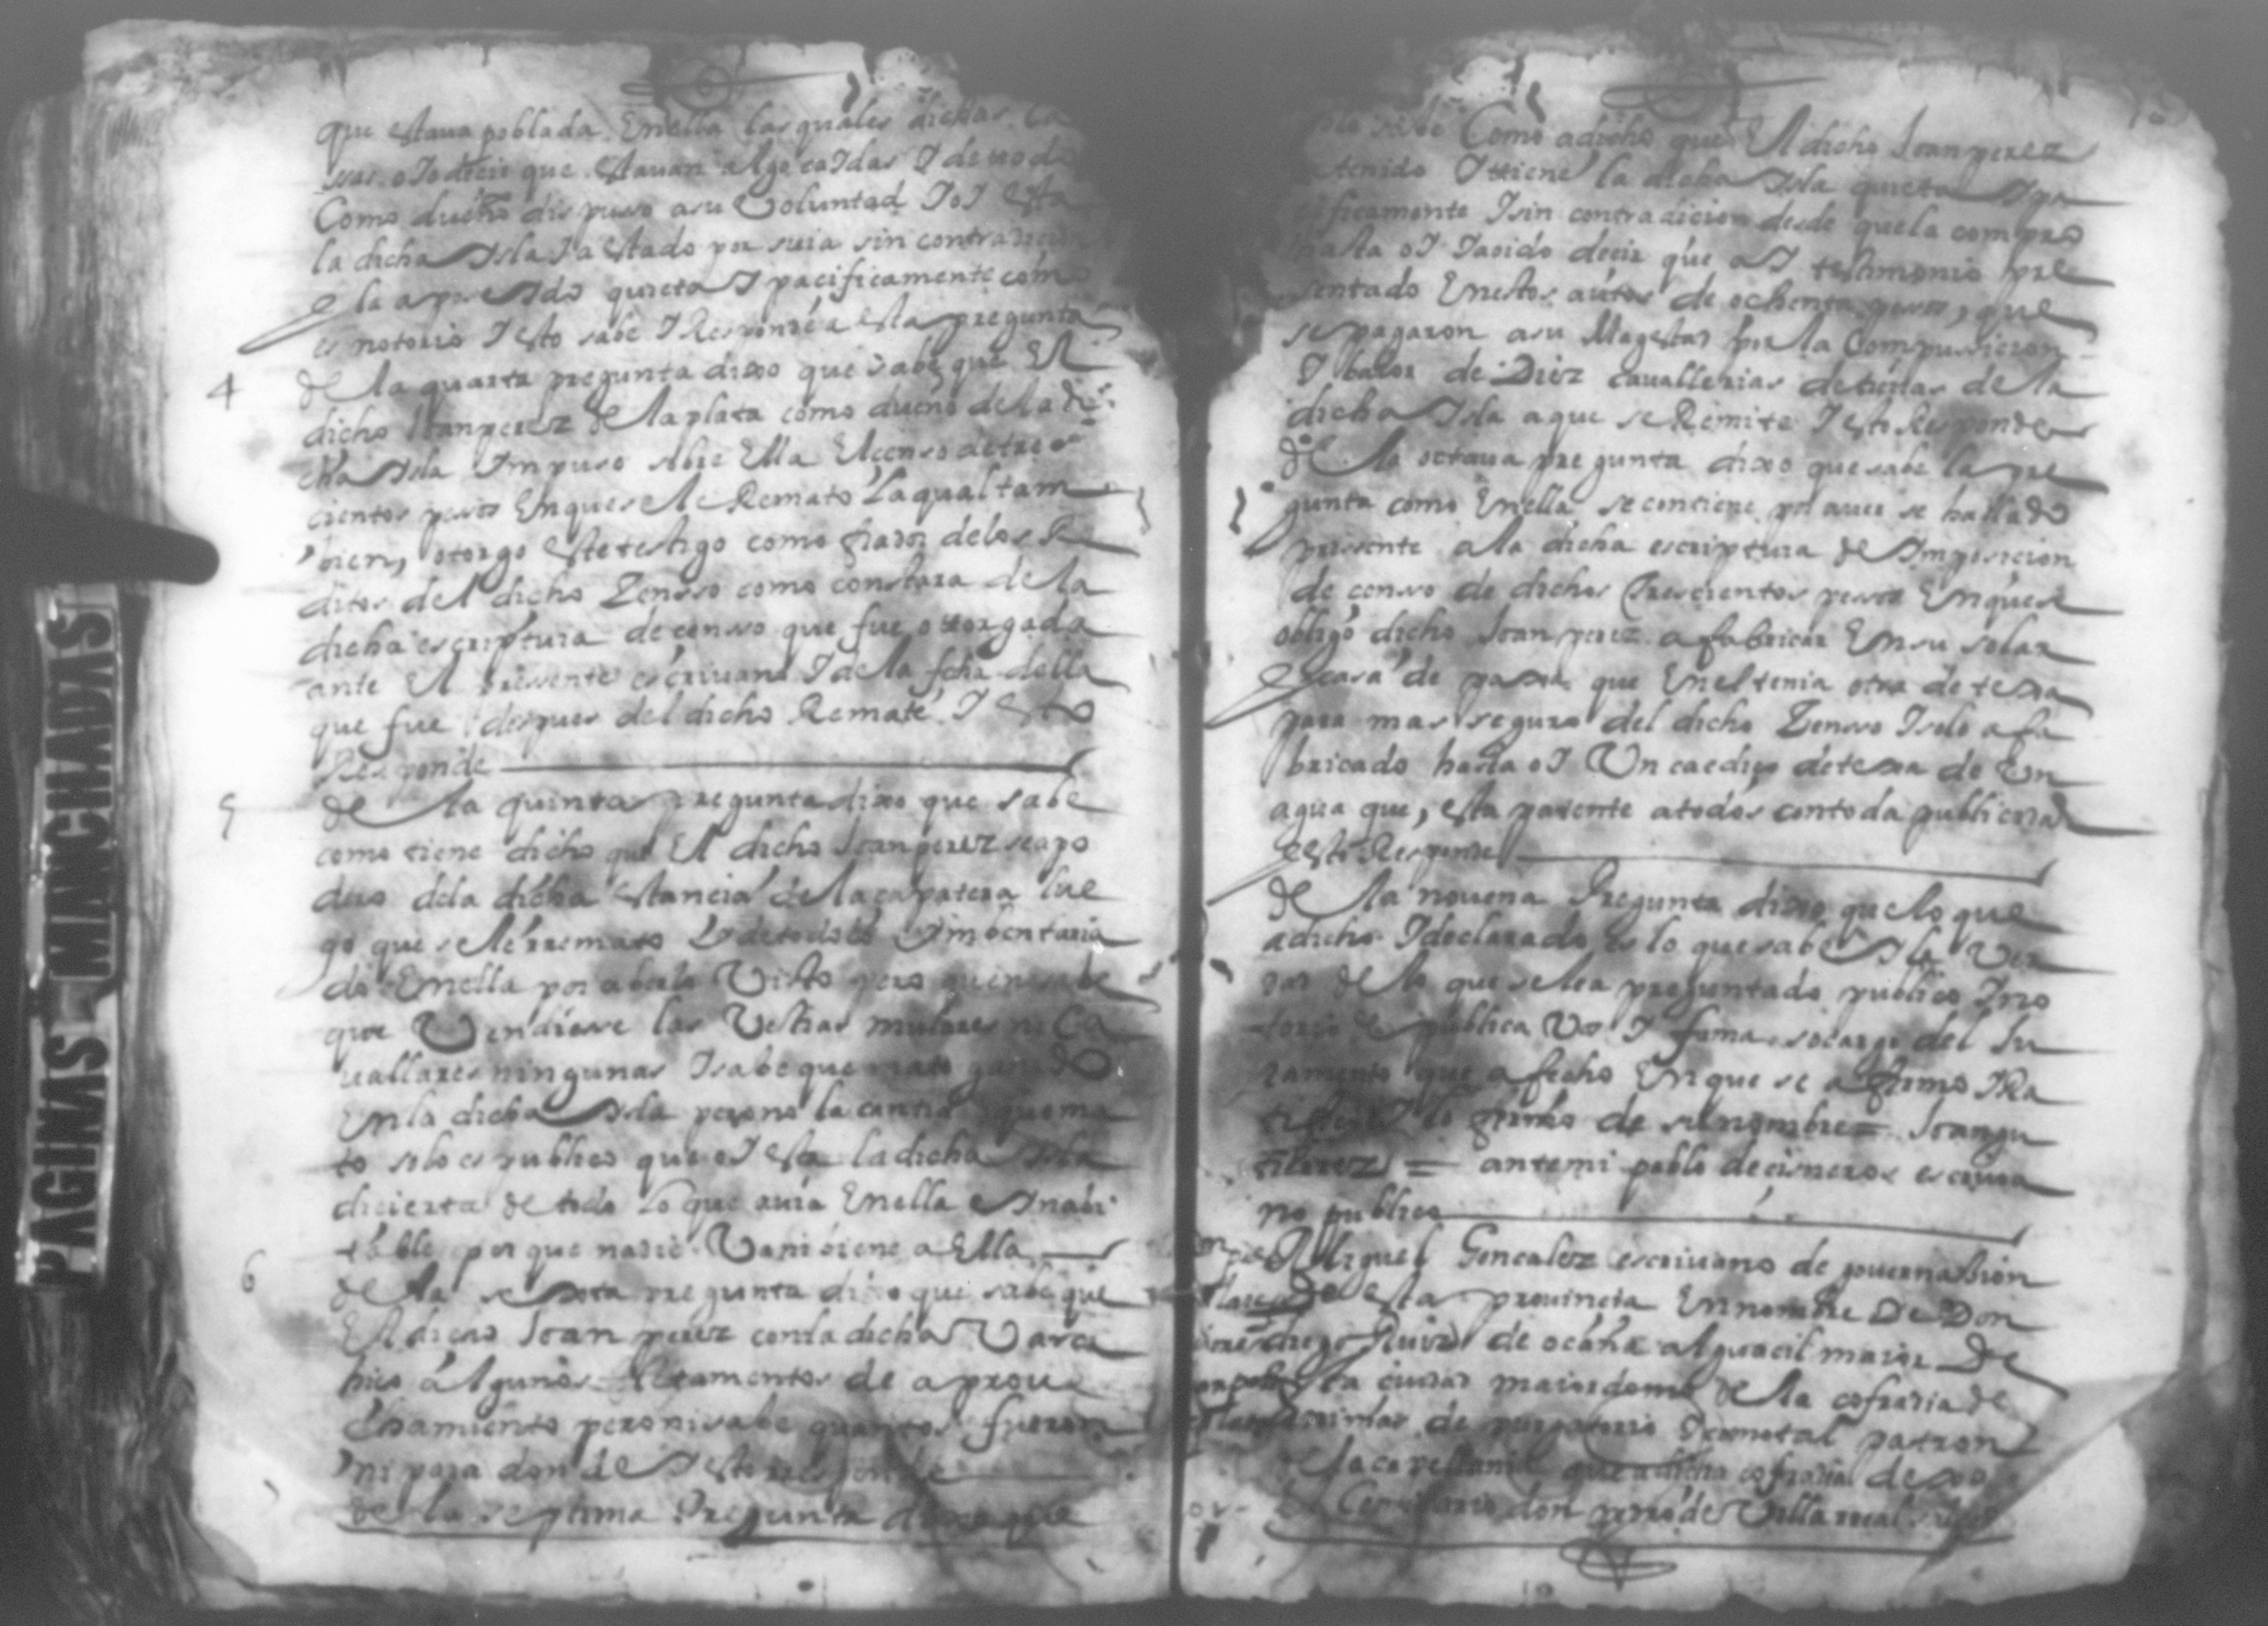 que estaua poblada Enella las quales dichas ca
ssas oJo decir que estauan algo caJdas J de todo
Como dueño dispuso asu Voluntad J oJ esta
la dicha Jsla J a estado por suia sin contradicion
e la a poseJdo quieta J pacificamente como
es notorio J esto sabe J Responde a esta pregunta
4
de la quarta pregunta dixo que sabe que El
dicho Joan perez de la plata como dueño de la di
cha Jsla Jmpuso sobre Ella El censo de tres
cientos pesos En que se le Remato La qual tam
bien, otorgo este testigo como fiador de los Re
ditos del dicho Zensso como constara de la
dicha escriptura de censo que fue otorgada
ante El presente escriuano J de la fcha della
que fue despues del dicho Remate J Esto
Responde
5
de la quinta pregunta dixo que sabe
como tiene dicho que El dicho Joan perez se apo
dero dela dicha estancia de la çapatera lue
go que se le rremato
do Enella por aberlo Visto pero que no sabe
que Vendiese las Vestias mulares ni Ca
uallares ningunas J sabe que mato ganado
En la dicha Jsla pero no la cantia que ma
to solo es publico que oJ esta la dicha Jsla
dicierta de todo lo que auia Enella e Jnabi
table por que nadie Va ni biene a Ella
6
de la sexta pregunta dixo que sabe que
El dicho Joan perez con la dicha Varca
hiço algunos fletamentos de aproue
chamiento pero ni sabe quantos fueron
ni para donde J esto responde
de la septima Pregunta dixo que
Como a dicho que El dicho Joan perez
tenido J tiene la dicha Jsla quieta J pa
cificamente J sin contradicion desde que la compro
hasta oJ J a oido decir que aJ testimonio pre
sentado Enestos autos de ochenta pesos, que
se pagaron asu Magestad por la Compusicion
J balor de Diez cauallerias de tierras de la
dicha Jsla a que se Remite J esto Responde
de la octaua pregunta dixo que sabe la pre
gunta como Enella se contiene por auer se hallado
presente a la dicha escriptura de Jmposicion
de censo de dichos trescientos pesos En que se
obligo dicho Joan perez a fabricar En su solar
e casa de paxa que Enel tenia otra de texa
para mas seguro del dicho Zensso J solo a fa
bricado hasta oJ Vn caediço de texa de Vn
agua que, esta patente a todos con toda publicidad
e esto Responde
de la nouena Pregunta dixo que lo que
a dicho J declarado es lo que sabe J la Ver
dad de lo que se le a preguntado publico J no
torio de publica Voz J fama so cargo del Ju
ramento que a fecho En que se afirmo J Ra
tifico J lo firmo de su nombre = Joan gu
tierrez = ante mi pablo de cisneros escriua
no publico
Miguel Gonçalez escriuano de gouernassion
de esta prouincia En nombre De Don
diego Ruiz de ocaña alguacil maior De
esta ciudad maiordomo de la cofradia de
animas de purgatorio J como tal patron
de la capellania que a dicha cofradia dexo
Comissario don pedro de Villa real
PAGINAS MANCHADAS